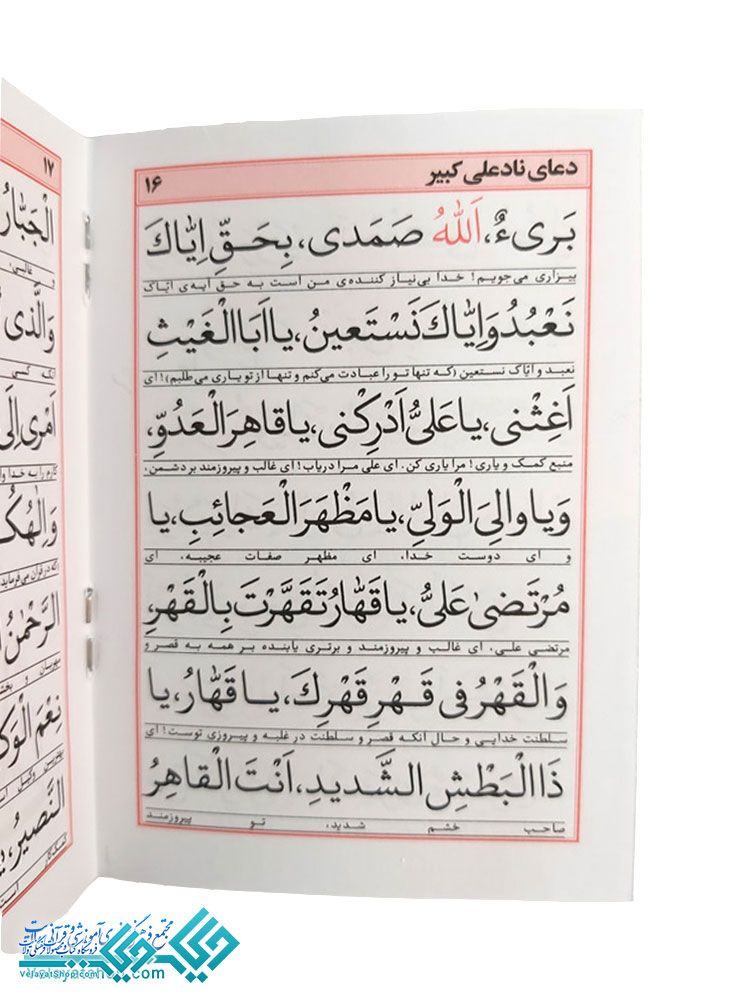 دعای ناد علی کبیر
۱۶
بَریءٌ، اَللهُ صَمَدی، بِحَقِّ اِیّاكَ
بیزاری می‌جویم! خدا بی‌نیاز کننده‌ی من است به حق آیه‌ی ایّاک
نَعْبُدُ وَ اِیّاكَ نَسْتَعینُ، یا اَبَا الْغَیْثِ
نعبد و ایّاک نستعین (که تنها تو را عبادت می‌کنم و تنها از تو یاری می‌طلبم)! ای
اَغِثْنی، یا عَلیُّ اَدْرِکْنی، یا قاهِرَ الْعَدُوِّ،
منبع کمک و یاری! مرا یاری کن. ای علی مرا دریاب! ای غالب و پیروزمند بر دشمن.
وَ یا والِیَ الْوَلیِّ، یا مَظْهَرَ الْعَجائِبِ، یا
و ای دوست خدا، ای مظهر صفات عجیبه. ای
مُرْتَضیٰ عَلیُّ، یا قَهّارُ تَقَهَّرْتَ بِالْقَهْرِ،
مرتضی علی. ای غالب و پیروزمند و برتری یابنده بر همه به قصر و
وَ الْقَهْرُ فی قَهْرِ قَهْرِكَ، یا قَهّارُ، یا
سلطنت خدایی و حال آنکه قصر و سلطنت در غلبه و پیروزی توست! ای
ذَا الْبَطْشِ الشَّدیدِ، اَنْتَ الْقاهِرُ
صاحب خشم شدید، تو پیروزمند
۱۷
الْجَبّارُ
و غالبی.
وَ الَّذی
آنکه کسی
اَمْری اِلَی
کارم را به خدا
وَ اِلٰهُکُ
که در قرآن می‌فرماید
الرَّحْمٰنُ
مهربان و
نِعْمَ الْوَک
بهترین وکیل
النَّصیرُ،
است
velayatshop.com